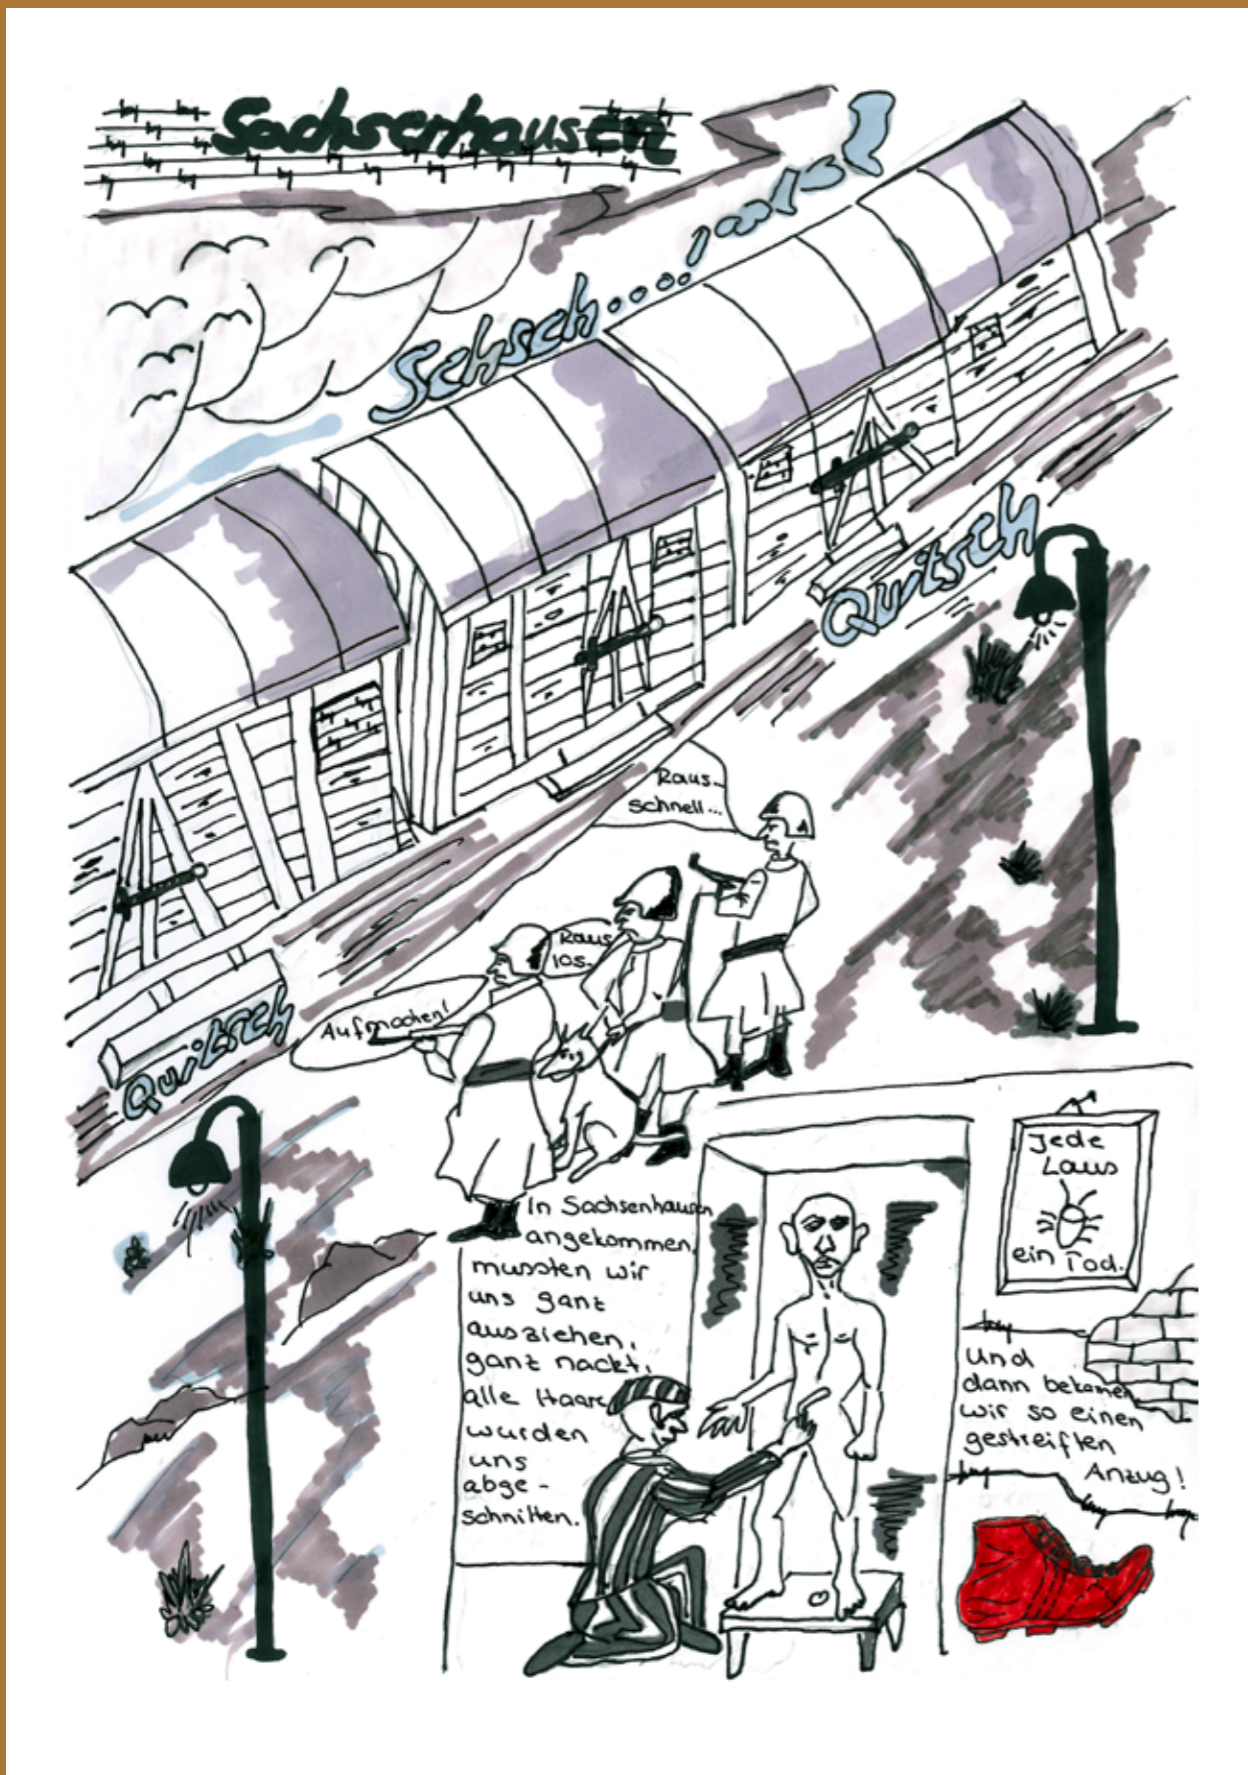 Sachsenhausen
Schsch....!
Quitsch
Raus...
schnell...
Raus
los..
Aufmachen!
Quitsch
In Sachsenhausen
angekommen,
mussten wir
uns ganz
ausziehen,
ganz nackt,
alle Haare
wurden
uns
abge-
schnitten.
Jede
Laus
ein Tod.
und
dann bekamen
wir so einen
gestreiften
Anzug!